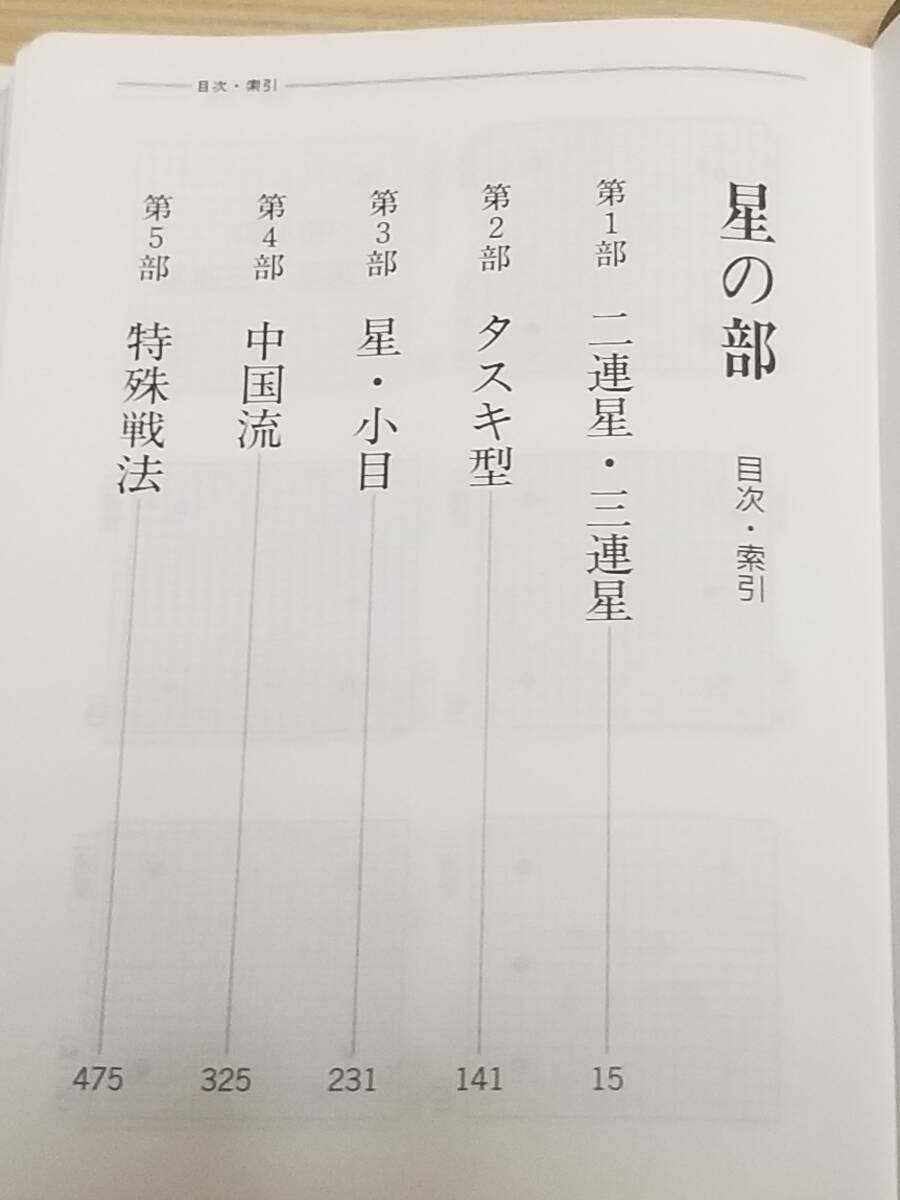 目次・索引
星の部 目次・索引
第1部 二連星・三連星 15
第2部 タスキ型 141
第3部 星・小目 231
第4部 中国流 325
第5部 特殊戦法 475